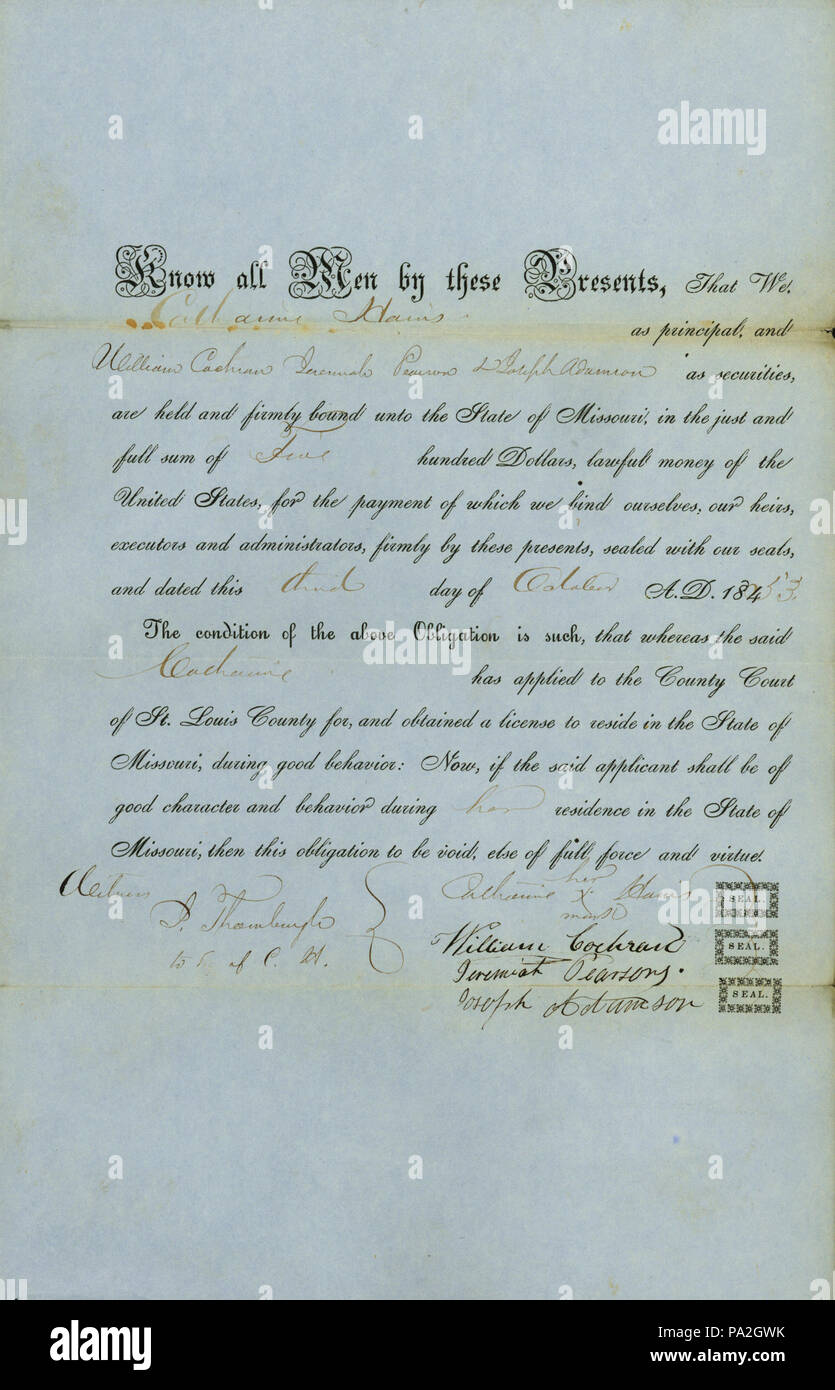 Know all Men by these Presents, That We,
Catharine Harris
as principal, and
William Cochran Jeremiah Pearson & Joseph Adamson as securities,
are held and firmly bound unto the State of Missouri, in the just and
full sum of Five hundred Dollars, lawful money of the
United States, for the payment of which we bind ourselves, our heirs,
executors and administrators, firmly by these presents, sealed with our seals,
and dated this third day of October A.D. 1853
The condition of the above Obligation is such, that whereas the said
Catharine has applied to the County Court
of St. Louis County for, and obtained a license to reside in the State of
Missouri, during good behavior: Now, if the said applicant shall be of
good character and behavior during her residence in the State of
Missouri, then this obligation to be void, else of full force and virtue.
Witness
Catharine her X mark Harris SEAL.
Thornburgh
William Cochran SEAL.
Jeremiah Pearsons.
Joseph Adamson SEAL.
alamy
alamy
Image ID: PA2GWK
www.alamy.com